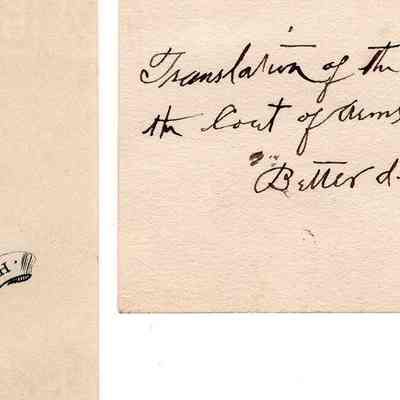 Translation of the
the Coat of Arms
"Better d